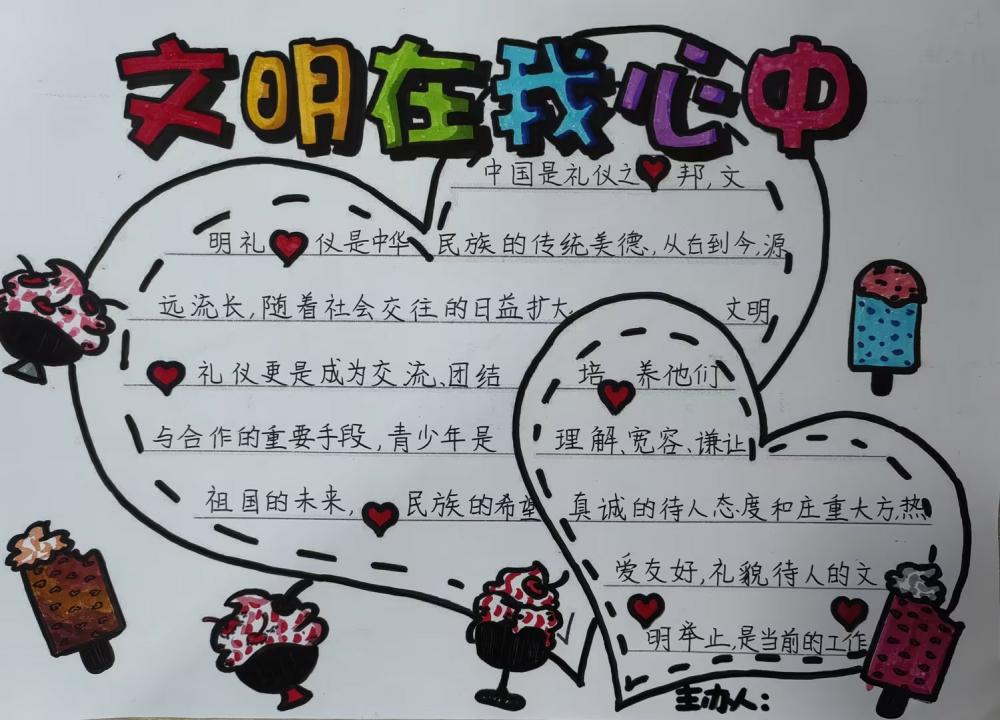 文明在我心中
中国是礼仪之邦,文
明礼仪是中华民族的传统美德,从古到今,源
远流长,随着社会交往的日益扩大 文明
礼仪更是成为交流、团结
与合作的重要手段,青少年是
祖国的未来,民族的希望
培养他们
理解、宽容、谦让
真诚的待人态度和庄重大方,热
爱友好,礼貌待人的文
明举止,是当前的工作
主办人: